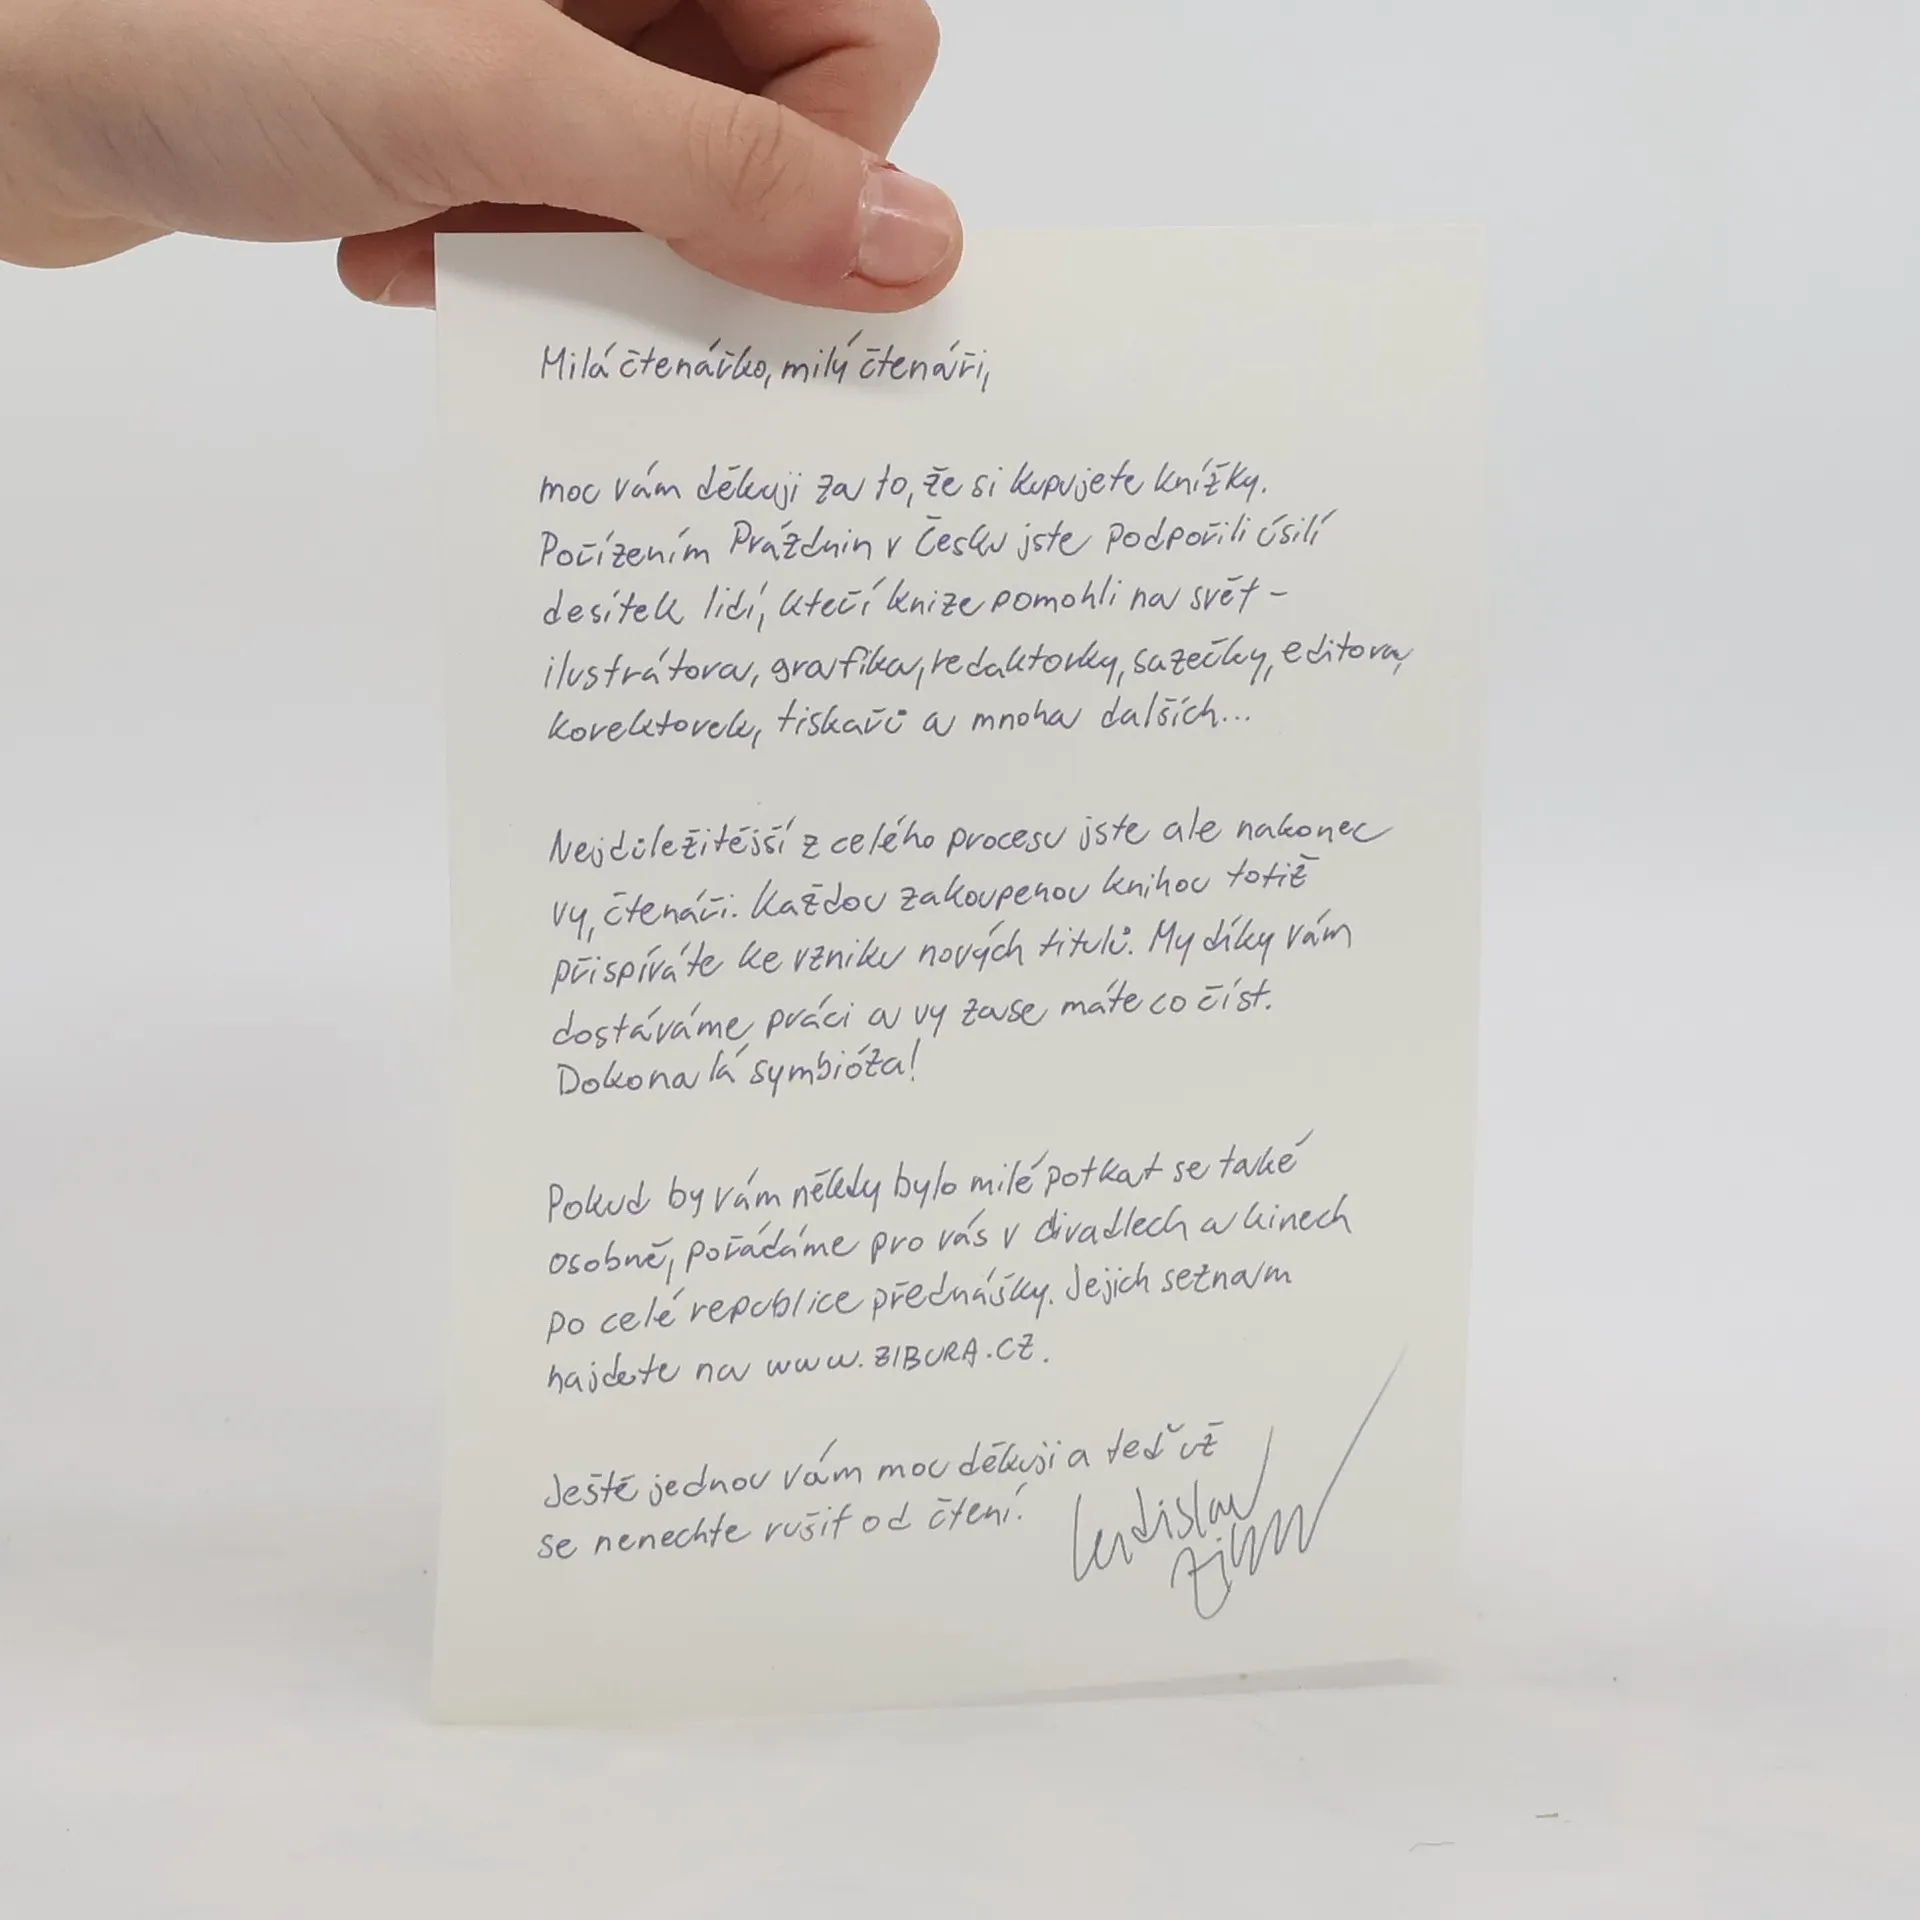 Milá čtenářko, milý čtenáři,
moc vám děkuji za to, že si kupujete knížky.
Pořízením Prázdnin v Česku jste podpořili úsilí
desítek lidí, kteří knize pomohli na svět –
ilustrátora, grafika, redaktorky, sazečky, editora,
korektorek, tiskařů a mnoha dalších...
Nejdůležitější z celého procesu jste ale nakonec
vy, čtenáři. Každou zakoupenou knihou totiž
přispíváte ke vzniku nových titulů. My díky vám
dostáváme práci a vy zase máte co číst.
Dokonalá symbióza!
Pokud by vám někdy bylo milé potkat se také
osobně, pořádáme pro vás v divadlech a kinech
po celé republice přednášky. Jejich seznam
najdete na www.ZIBURA.CZ.
Ještě jednou vám moc děkuji a teď už
se nenechte rušit od čtení.
Ladislav
Zibura